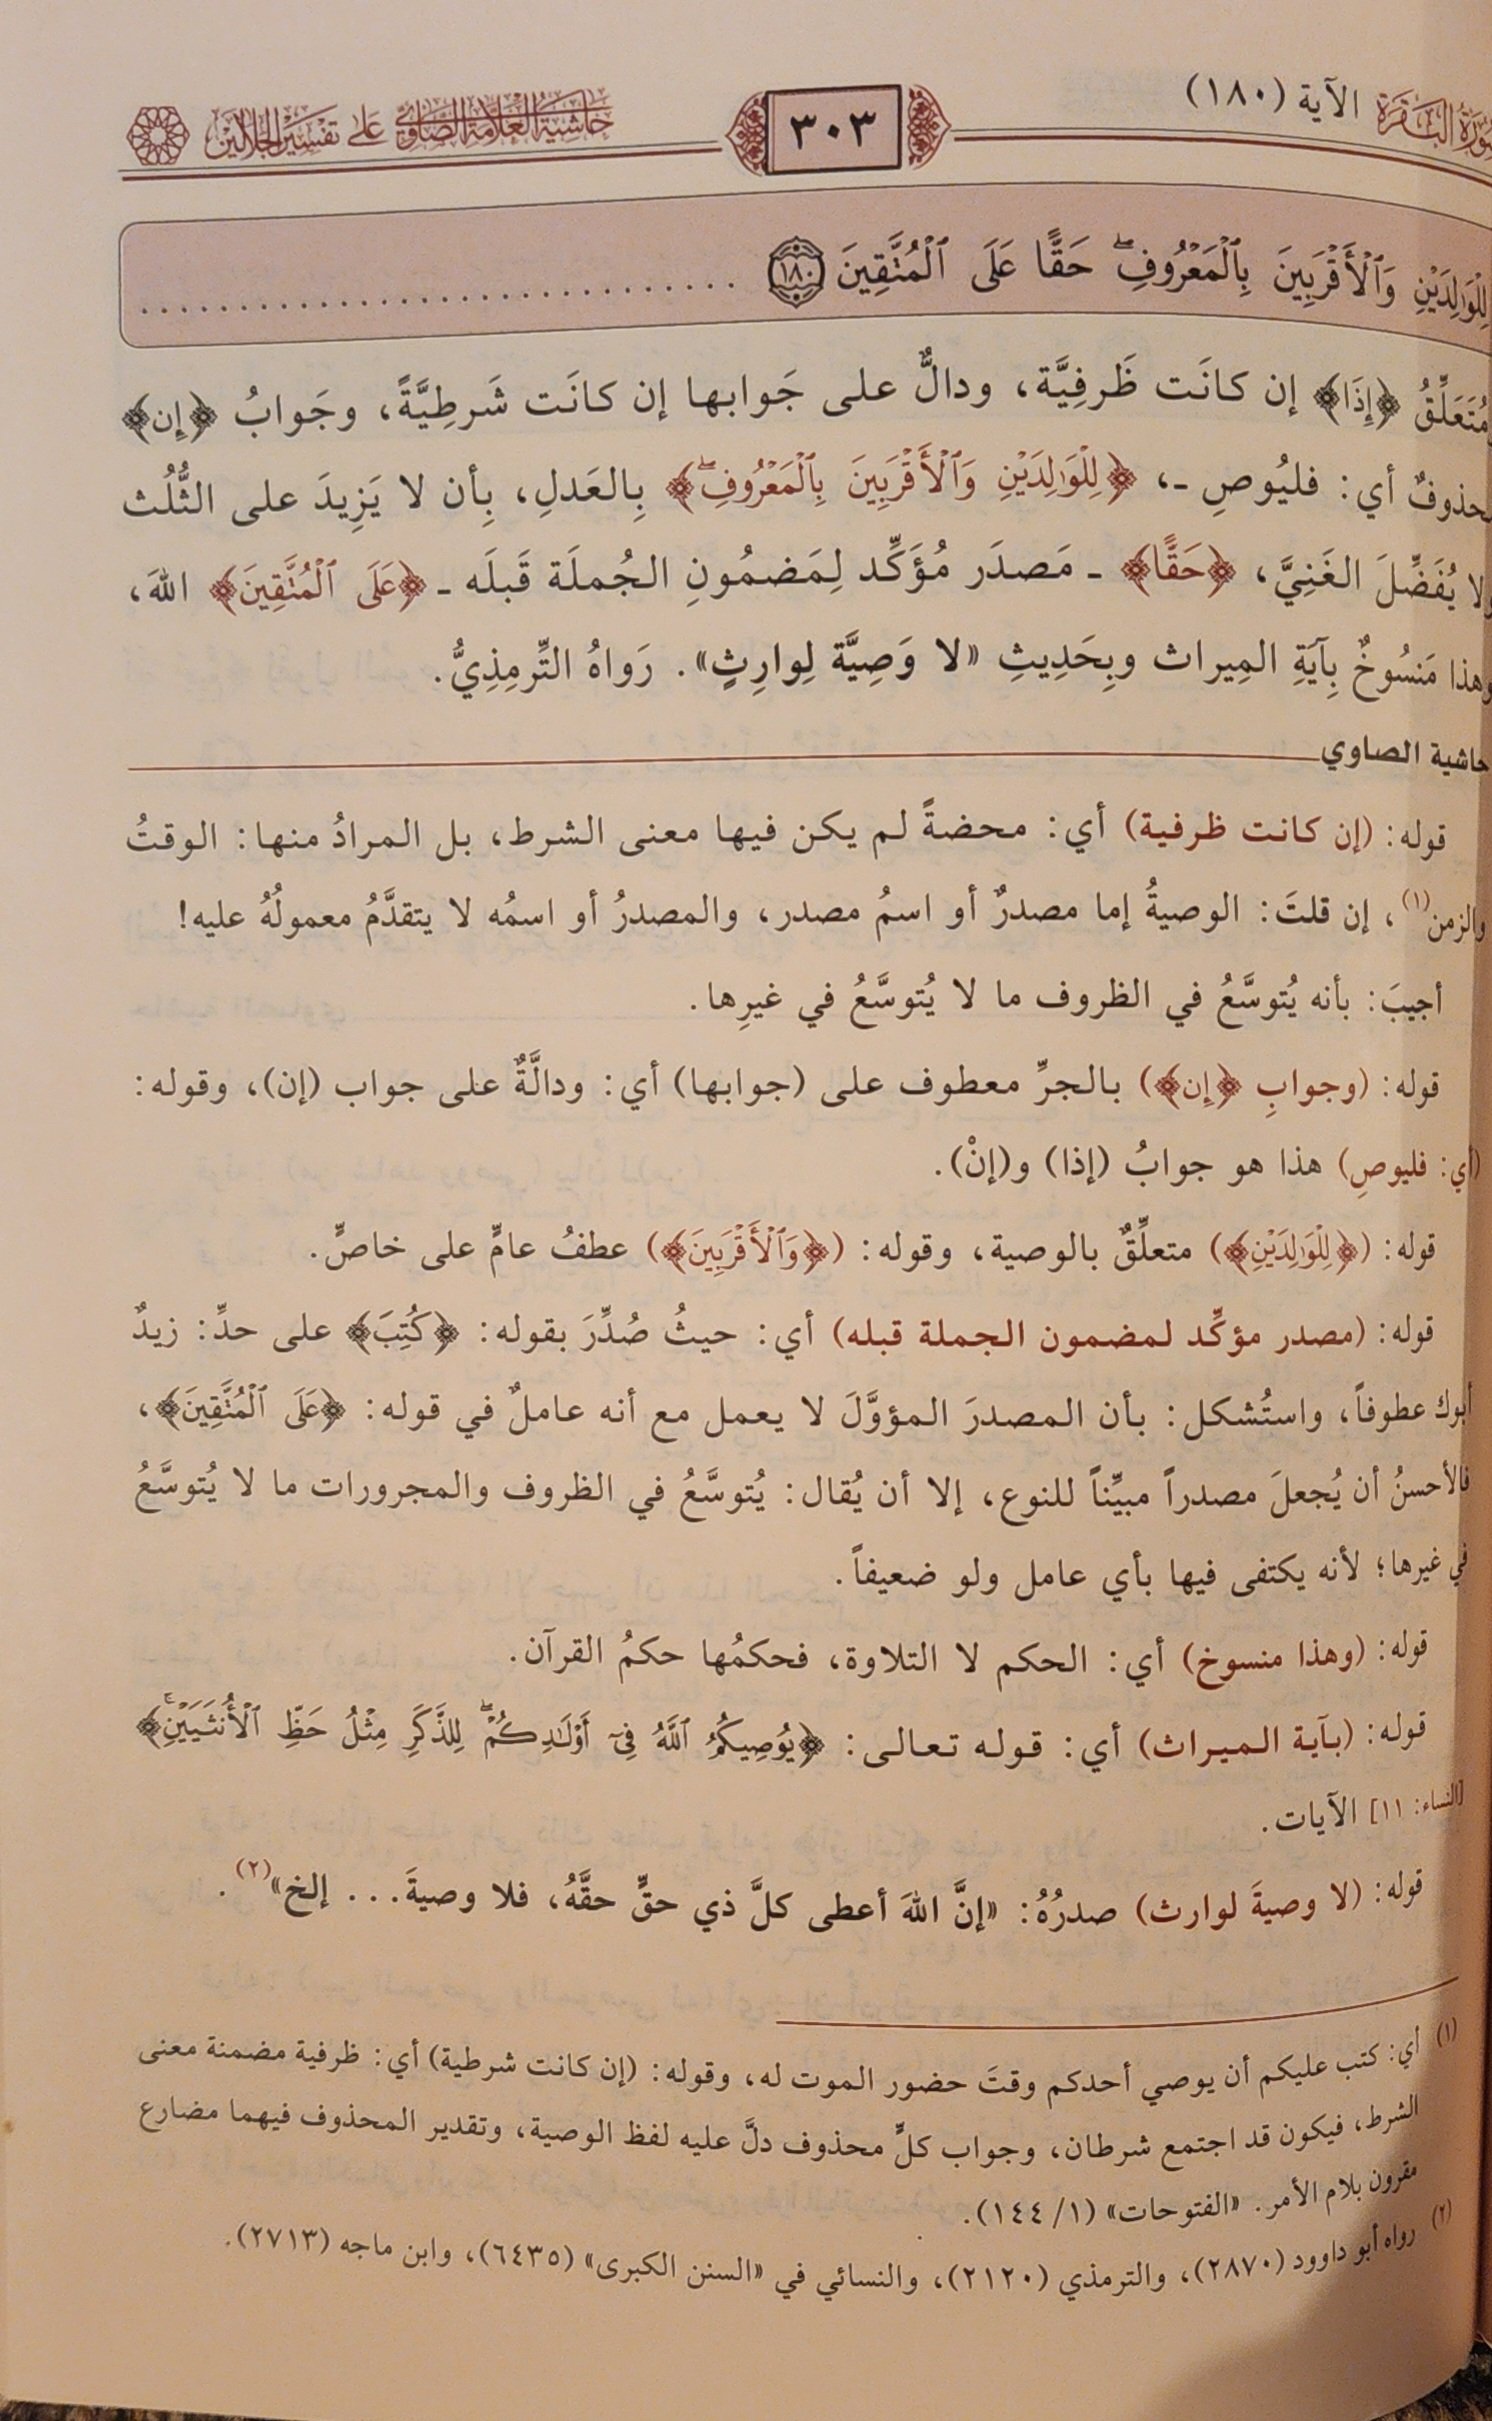 سورة البقرة الآية (١٨٠)
٣٠٣
حاشية العلامة الصاوي على تفسير الجلالين
لِلْوَٰلِدَيْنِ وَٱلْأَقْرَبِينَ بِٱلْمَعْرُوفِۖ حَقًّا عَلَى ٱلْمُتَّقِينَ ١٨٠ ..............................
مُتَعَلِّقُ ﴿إِذَا﴾ إن كانَت ظَرفِيَّة، ودالٌّ على جَوابها إن كانَت شَرطِيَّةً، وجَوابُ ﴿إِن﴾
محذوفٌ أي: فليُوصِ ـ، ﴿لِلْوَٰلِدَيْنِ وَٱلْأَقْرَبِينَ بِٱلْمَعْرُوفِۖ﴾ بِالعَدلِ، بِأن لا يَزِيدَ على الثُّلُث
ولا يُفَضِّلَ الغَنِيَّ، ﴿حَقًّا﴾ ـ مَصدَر مُؤَكِّد لِمَضمُونِ الجُملَة قَبلَه ـ ﴿عَلَى ٱلْمُتَّقِينَ﴾ اللهَ،
وهذا مَنسُوخٌ بِآيَةِ المِيراث وبِحَدِيثِ «لا وَصِيَّة لِوارِثٍ». رَواهُ التِّرمِذِيُّ.
حاشية الصاوي
قوله: (إن كانت ظرفية) أي: محضةً لم يكن فيها معنى الشرط، بل المرادُ منها: الوقتُ
والزمن(١)، إن قلتَ: الوصيةُ إما مصدرٌ أو اسمُ مصدر، والمصدرُ أو اسمُه لا يتقدَّمُ معمولُهُ عليه!
أجيبَ: بأنه يُتوسَّعُ في الظروف ما لا يُتوسَّعُ في غيرِها.
قوله: (وجوابِ ﴿إِن﴾) بالجرِّ معطوف على (جوابها) أي: ودالَّةٌ على جواب (إن)، وقوله:
(أي: فليوصِ) هذا هو جوابُ (إذا) و(إنْ).
قوله: (﴿لِلْوَٰلِدَيْنِ﴾) متعلِّقٌ بالوصية، وقوله: (﴿وَٱلْأَقْرَبِينَ﴾) عطفُ عامٍّ على خاصٍّ.
قوله: (مصدر مؤكِّد لمضمون الجملة قبله) أي: حيثُ صُدِّرَ بقوله: ﴿كُتِبَ﴾ على حدِّ: زيدٌ
أبوك عطوفاً، واستُشكل: بأن المصدرَ المؤوَّلَ لا يعمل مع أنه عاملٌ في قوله: ﴿عَلَى ٱلْمُتَّقِينَ﴾،
فالأحسنُ أن يُجعلَ مصدراً مبيِّناً للنوع، إلا أن يُقال: يُتوسَّعُ في الظروف والمجرورات ما لا يُتوسَّعُ
في غيرها؛ لأنه يكتفى فيها بأي عامل ولو ضعيفاً.
قوله: (وهذا منسوخ) أي: الحكم لا التلاوة، فحكمُها حكمُ القرآن.
قوله: (بآية الميراث) أي: قوله تعالى: ﴿يُوصِيكُمُ ٱللَّهُ فِىٓ أَوْلَٰدِكُمْۖ لِلذَّكَرِ مِثْلُ حَظِّ ٱلْأُنثَيَيْنِۚ﴾
[النساء: ١١] الآيات.
قوله: (لا وصيةَ لوارث) صدرُهُ: «إنَّ اللهَ أعطى كلَّ ذي حقٍّ حقَّهُ، فلا وصيةَ... إلخ»(٢).
(١) أي: كتب عليكم أن يوصي أحدكم وقتَ حضور الموت له، وقوله: (إن كانت شرطية) أي: ظرفية مضمنة معنى
الشرط، فيكون قد اجتمع شرطان، وجواب كلٍّ محذوف دلَّ عليه لفظ الوصية، وتقدير المحذوف فيهما مضارع
مقرون بلام الأمر. «الفتوحات» (١/ ١٤٤).
(٢) رواه أبو داوود (٢٨٧٠)، والترمذي (٢١٢٠)، والنسائي في «السنن الكبرى» (٦٤٣٥)، وابن ماجه (٢٧١٣).